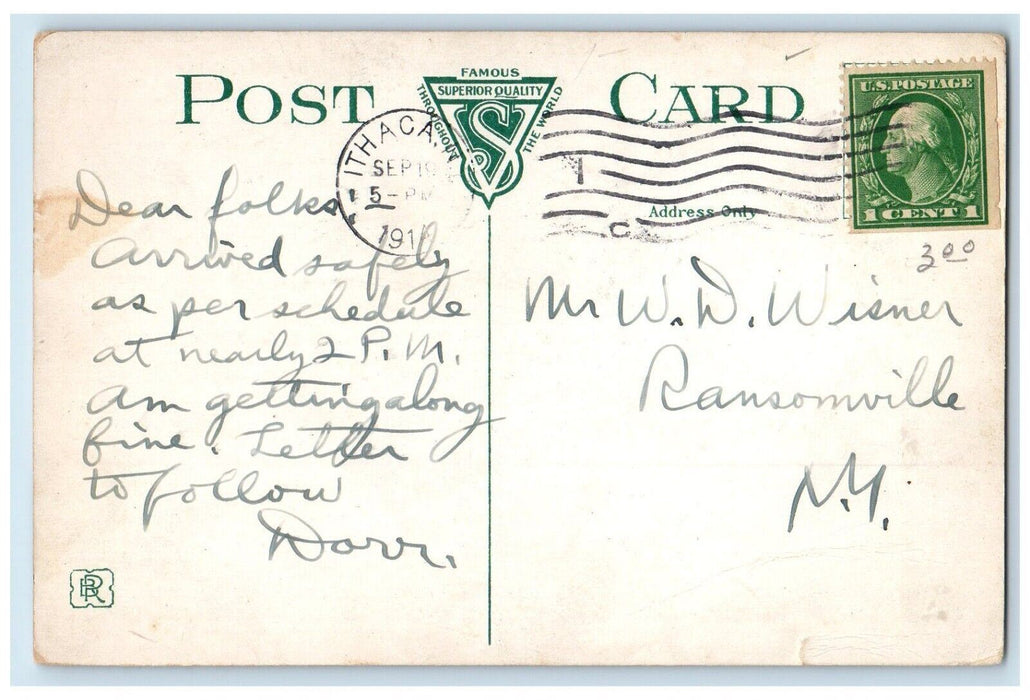 POST CARD
FAMOUS
SUPERIOR QUALITY
THROUGHOUT THE WORLD
VS
ITHACA, N
SEP 19
5 - PM
191
1
C
U.S. POSTAGE
1 CENT 1
3 00
Address Only
Dear folks
Arrived safely
as per schedule
at nearly 2 P.M.
Am getting along
fine. Letter
to follow
Dorr.
Mr W. D. Wisner
Ransomville
N.Y.